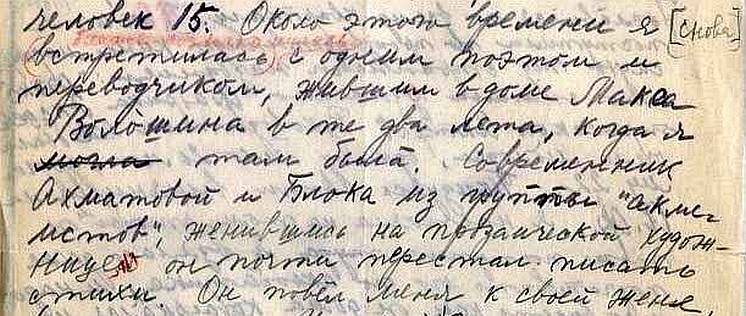 человек 15. Около этого времени я [снова]
встретилась с одним поэтом и
переводчиком, жившим в доме Макса
Волошина в те два лета, когда я
могла там была. Современник
Ахматовой и Блока из группы "акме-
истов", женившись на прозаической худож-
нице, он почти перестал писать
стихи. Он повёл меня к своей жене,